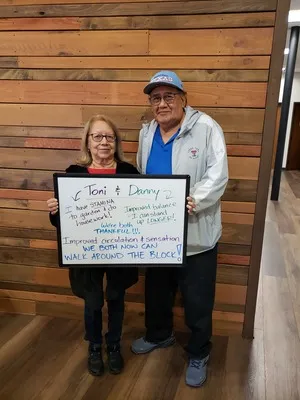 Toni & Danny
I have STAMINA
to garden & do
housework!
Improved balance
& I can stand
UP LONGER!
We're both
THANKFUL!!!
Improved circulation & sensation
WE BOTH NOW CAN
WALK AROUND THE BLOCK!